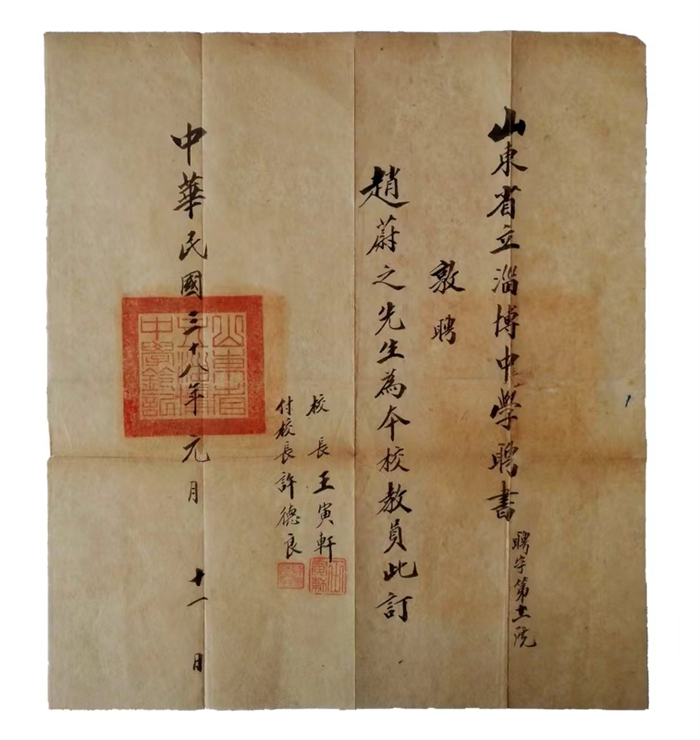 山東省立淄博中學聘書
聘字第十一號
敦聘
趙蔚之先生為本校教員此訂
校長王寅軒
付校長許德良
中華民國三十八年元月十一日